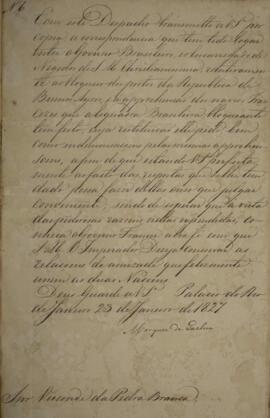 Com este Despacho transmitto a V.S. por
copia a correspondencia que tem tido lugar
entre o Governo Brasileiro, e o encarregado de
Negocios de S. M. Christianissima, relativamente
ao bloqueio dos portos da Republica de
Buenos Ayres, e ás aprehensões dos navios Fran-
cezes que a Esquadra Brasileira bloqueante
tem feito, cuja restituição elle pede bem
como indemnisações pelas mesmas apprehen-
sões, a fim de que estando V.S. perfeita-
mente ao facto das respostas que sobre tem
dado possa fazer dellas o uso que julgar
conveniente, sendo de esperar que á vista
das poderosas razões nellas expendidas, co-
nheça o Governo Francez a boa fé com que
S. M. O Imperador Deseja conservar as
relações de amizade que felizmente
unem as duas Nações.
Deos Guarde a V.S. Palacio do Rio
de Janeiro 23 de Janeiro de 1827
Marquez de
Snr Visconde da Pedra Branca.